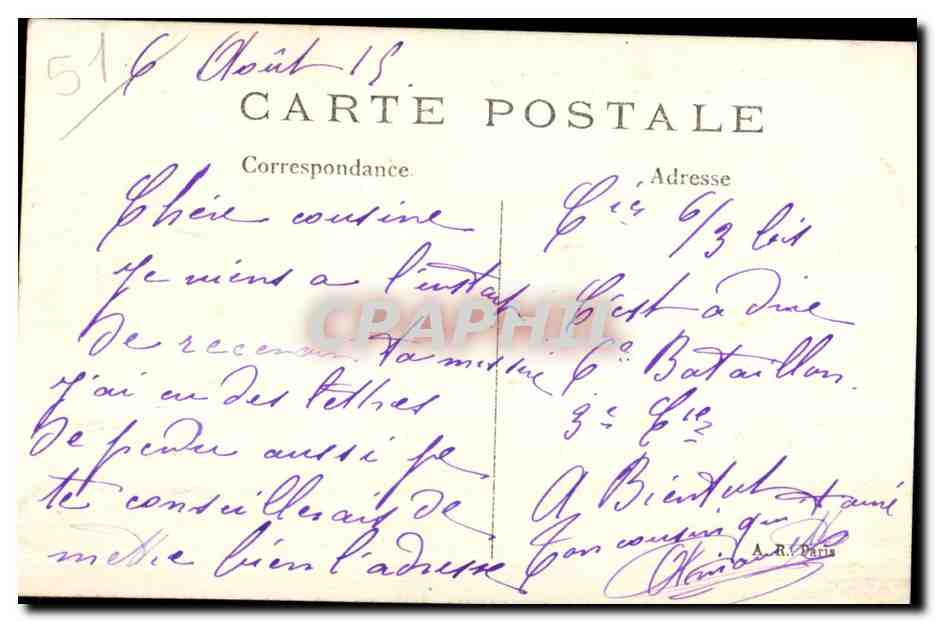 51
6 Août 15
CARTE POSTALE
Correspondance
Chère cousine
Je viens a l'instant
de recevoir ta missive
J'ai eu des lettres
de perdu aussi je
te conseillerais de
mettre bien l'adresse
Adresse
Cie 6/3 bis
C'est a dire
6e Bataillon
3e Cie
A Bientot
Ton cousin qui t'aime
A. R. Paris
CPAPHIL